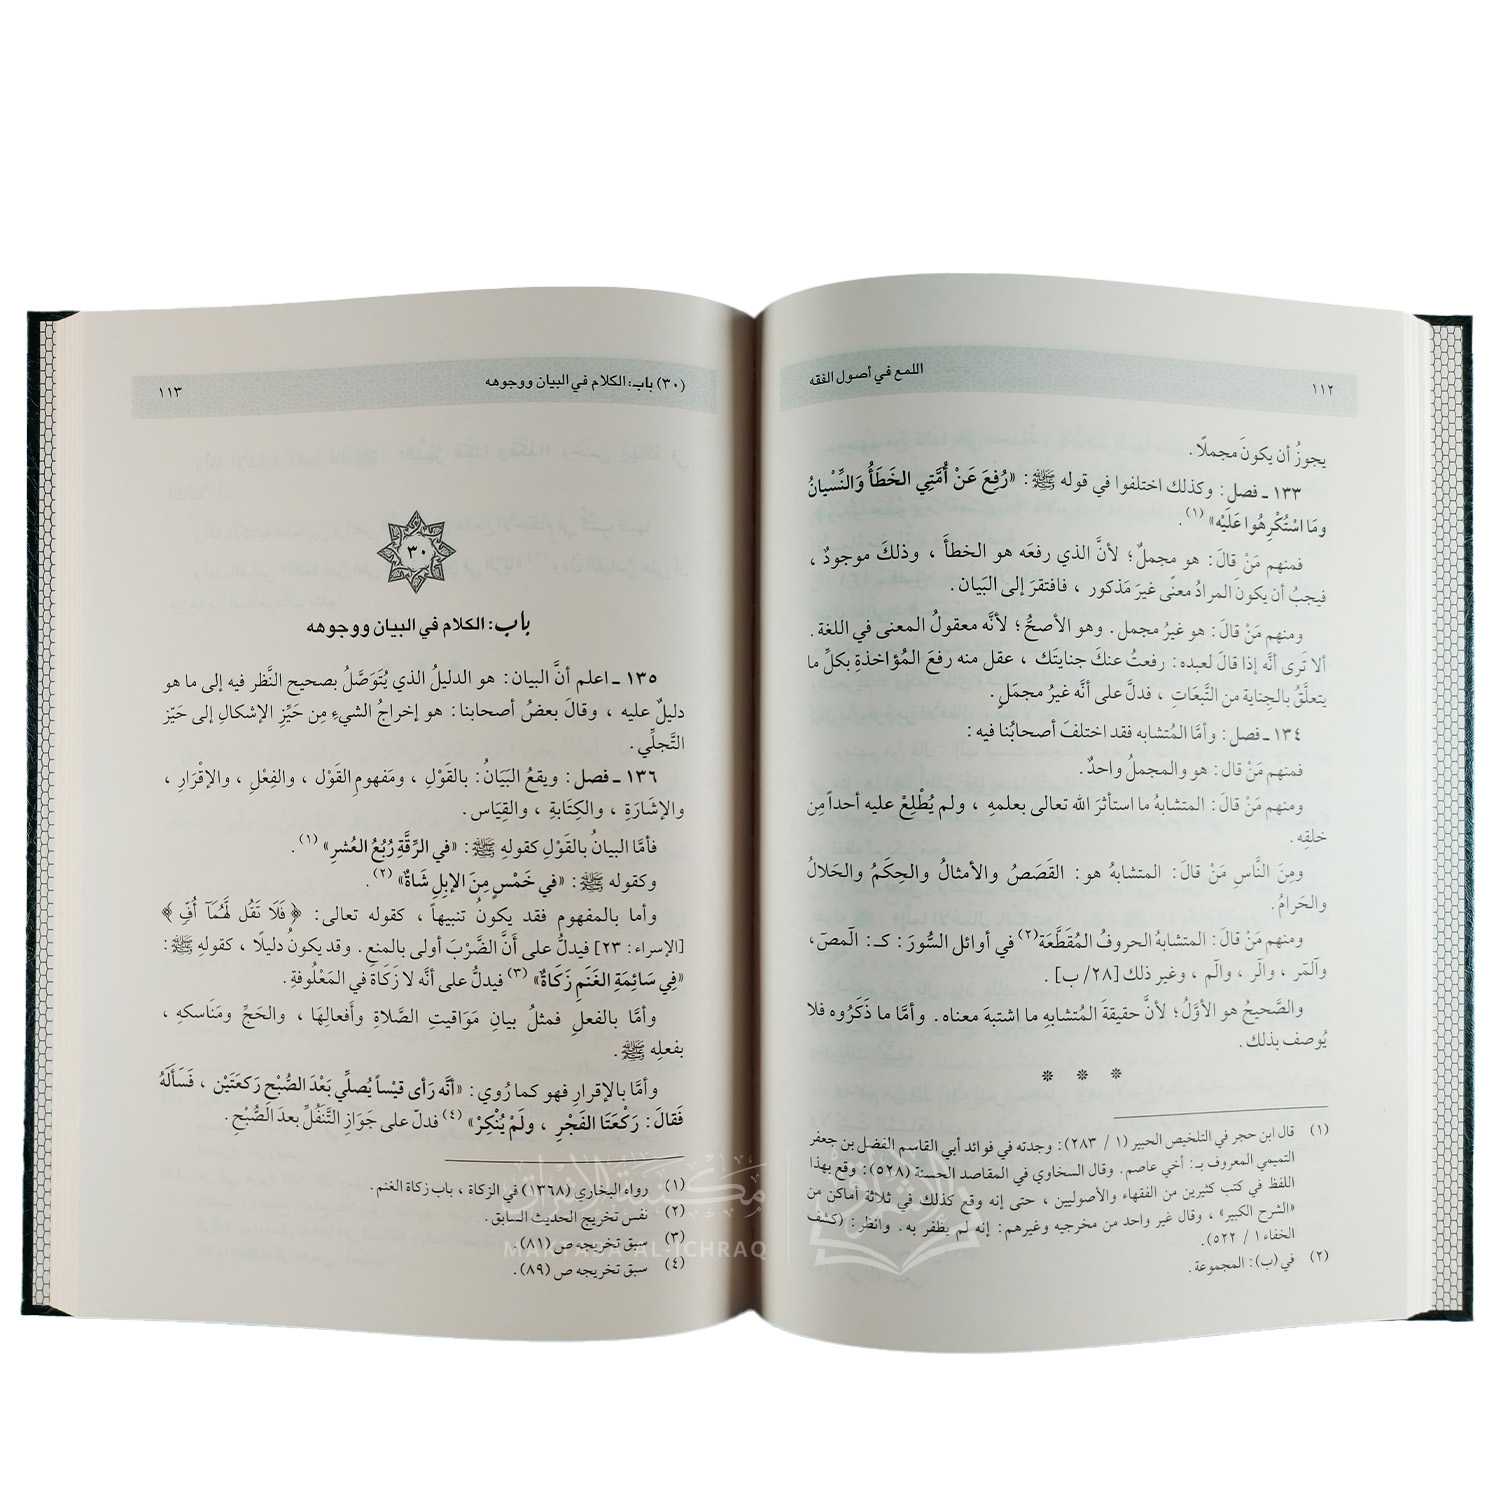 ١١٢
اللمع في أصول الفقه
يجوزُ أن يكونَ مجملًا .
١٣٣ ـ فصل : وكذلك اختلفوا في قوله ﷺ : «رُفِعَ عَنْ أُمَّتِي الخَطَأُ وَالنِّسْيانُ
ومَا اسْتُكْرِهُوا عَلَيْه» (١) .
فمنهم مَنْ قالَ : هو مجملٌ ؛ لأنَّ الذي رفعَه هو الخطأَ ، وذلكَ موجودٌ ،
فيجبُ أن يكونَ المرادُ معنًى غيرَ مَذكور ، فافتقرَ إلى البَيان .
ومنهم مَنْ قالَ : هو غيرُ مجمل . وهو الأصحُّ ؛ لأنَّه معقولُ المعنى في اللغة .
ألا تَرى أنَّه إذا قالَ لعبده : رفعتُ عنكَ جنايتَك ، عقل منه رفعَ المُؤاخذةِ بكلِّ ما
يتعلَّقُ بالجِناية من التَّبعَاتِ ، فدلَّ على أنَّه غيرُ مجمَلٍ .
١٣٤ ـ فصل : وأمَّا المُتشابه فقد اختلفَ أصحابُنا فيه :
فمنهم مَنْ قال : هو والمجملُ واحدٌ .
ومنهم مَنْ قالَ : المتشابهُ ما استأثرَ الله تعالى بعلمهِ ، ولم يُطْلِعْ عليه أحداً مِن
خلقِه .
ومِنَ النَّاسِ مَنْ قالَ : المتشابهُ هو : القَصَصُ والأمثالُ والحِكَمُ والحَلالُ
والحَرامُ .
ومنهم مَنْ قالَ : المتشابهُ الحروفُ المُقَطَّعَة (٢) في أوائل السُّورَ : كـ : الٓمصٓ ،
والٓمٓر ، والٓر ، والٓم ، وغير ذلك [٢٨/ ب] .
والصَّحيحُ هو الأوَّلُ ؛ لأنَّ حقيقةَ المُتشابهِ ما اشتبهَ معناه . وأمَّا ما ذَكَرُوه فلا
يُوصف بذلك .
* * *
(١) قال ابن حجر في التلخيص الحبير (١ / ٢٨٣) : وجدته في فوائد أبي القاسم الفضل بن جعفر
التميمي المعروف بـ : أخي عاصم . وقال السخاوي في المقاصد الحسنة (٥٢٨) : وقع بهذا
اللفظ في كتب كثيرين من الفقهاء والأصوليين ، حتى إنه وقع كذلك في ثلاثة أماكن من
«الشرح الكبير» ، وقال غير واحد من مخرجيه وغيرهم : إنه لم يظفر به . وانظر : (كشف
الخفاء ١ / ٥٢٢) .
(٢) في (ب) : المجموعة .
(٣٠) باب : الكلام في البيان ووجوهه
١١٣
٣٠
باب : الكلام في البيان ووجوهه
١٣٥ ـ اعلم أنَّ البيان : هو الدليلُ الذي يُتَوَصَّلُ بصحيح النَّظر فيه إلى ما هو
دليلٌ عليه ، وقالَ بعضُ أصحابنا : هو إخراجُ الشيءِ مِن حَيِّزِ الإشكالِ إلى حَيّزِ
التَّجلِّي .
١٣٦ ـ فصل : ويقعُ البَيَانُ : بالقَوْلِ ، ومَفهومِ القَوْل ، والفِعْلِ ، والإقْرَارِ ،
والإشَارَةِ ، والكِتَابَةِ ، والقِيَاس .
فأمَّا البيانُ بالقَوْلِ كقولهِ ﷺ : «في الرِّقَّةِ رُبُعُ العُشرِ» (١) .
وكقوله ﷺ : «في خَمْسٍ مِنَ الإبلِ شَاةٌ» (٢) .
وأما بالمفهوم فقد يكونُ تنبيهاً ، كقوله تعالى : ﴿ فَلَا تَقُل لَّهُمَآ أُفٍّ ﴾
[الإسراء : ٢٣] فيدلُّ على أَنَّ الضَّرْبَ أولى بالمنع . وقد يكونُ دليلًا ، كقولهِ ﷺ :
«فِي سَائِمَةِ الغَنَمِ زَكَاةٌ» (٣) فيدلُّ على أنَّه لا زَكَاةَ في المَعْلُوفةِ .
وأمَّا بالفعلِ فمثلُ بيانِ مَوَاقيتِ الصَّلاةِ وأَفعالِهَا ، والحَجِّ ومَنَاسكهِ ،
بفعلِه ﷺ .
وأمَّا بالإقرارِ فهو كما رُوي : «أنَّه رَأى قَيْساً يُصلِّي بَعْدَ الصُّبْحِ رَكعَتَيْن ، فَسَألَهُ
فَقَالَ : رَكْعَتَا الفَجْرِ ، ولَمْ يُنْكِرْ» (٤) فدلّ على جَوَازِ التَّنَفُّلِ بعدَ الصُّبْحِ .
(١) رواه البخاري (١٣٦٨) في الزكاة ، باب زكاة الغنم .
(٢) نفس تخريج الحديث السابق .
(٣) سبق تخريجه ص (٨١) .
(٤) سبق تخريجه ص (٨٩) .
مكتبة الإشراق
MAKTABA AL-ICHRAQ